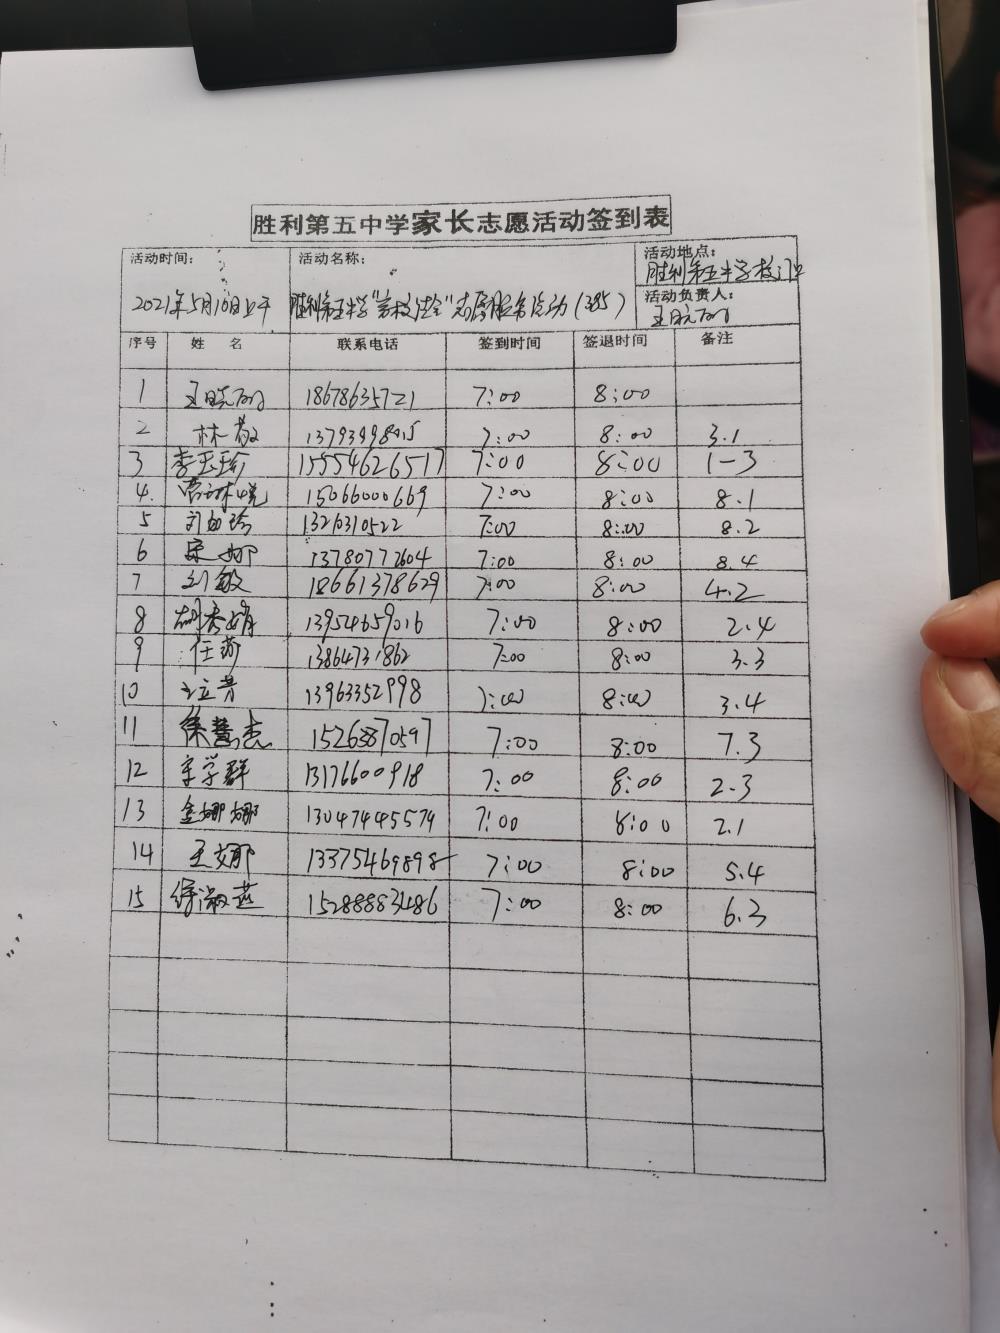 胜利第五中学家长志愿活动签到表
活动时间： 活动名称： 活动地点：
胜利第五中学校门口
2021年5月10日上午 胜利第五中学" "志愿服务活动（385） 活动负责人：
王晓丽
序号 姓 名 联系电话 签到时间 签退时间 备注
1 王晓丽 18678635721 7:00 8:00
2 林敏 13793998015 7:00 8:00 3.1
3 李玉珍 15554626517 7:00 8:00 1-3
4. 15066000669 7:00 8:00 8.1
5 1326310522 7:00 8:00 8.2
6 宋娜 13780772604 7:00 8:00 8.4
7 刘敏 18661378629 7:00 8:00 4.2
8 胡秀娟 13954659016 7:00 8:00 2.4
9 任莉 13864731862 7:00 8:00 3.3
10 王立芳 13963352998 7:00 8:00 3.4
11 徐慧杰 15263870597 7:00 8:00 7.3
12 宋学群 13176600918 7:00 8:00 2.3
13 金娜娜 13047445579 7:00 8:00 2.1
14 王文娜 13375469898 7:00 8:00 5.4
15 徐淑燕 15288883486 7:00 8:00 6.3